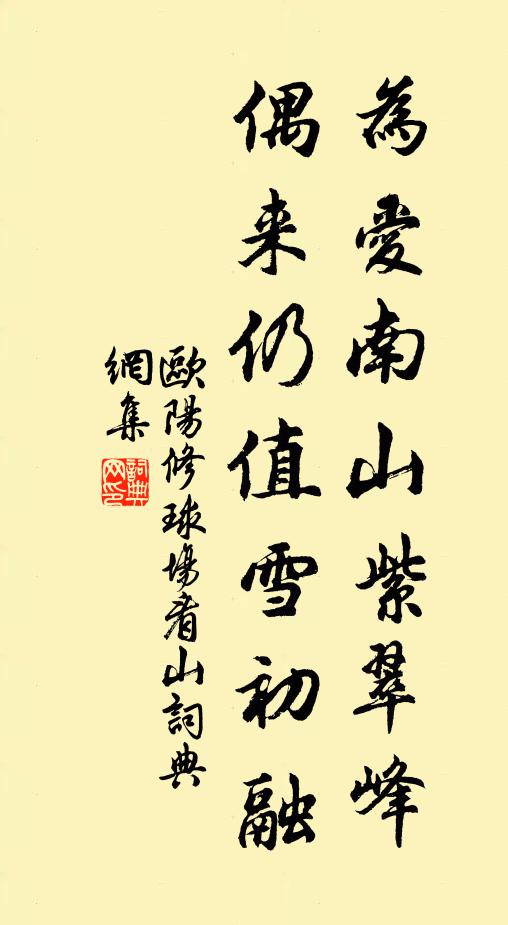 為愛南山紫翠峰
偶来仍值雪初融
歐陽修球場看山詞典
網集
詞典
网印